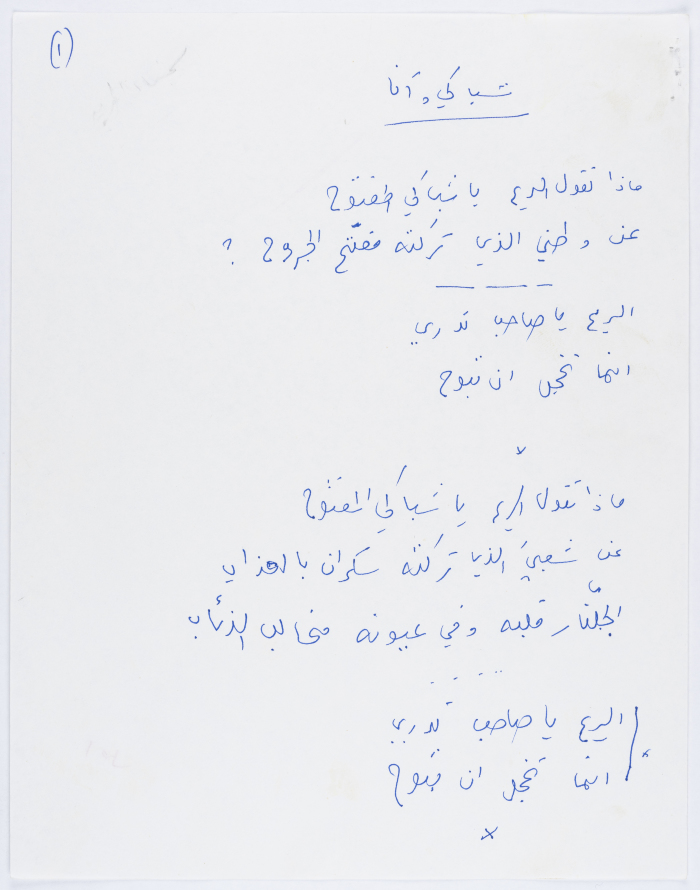 (١)
شباكي، وأنا
ماذا تقول الريح يا شباكي المفتوح
عن وطني الذي تركته مفتّح الجروح ؟
الريح يا صاحب تدري
انما تخجل ان تبوح
x
ماذا تقول الريح يا شباكي المفتوح
عن شعبيَ الذي تركته سكران بالعذاب
الجلّنار قلبه وفي عيونه مخالب الذئاب
.....
الريح يا صاحب تدري
انما تخجل ان تبوح
x